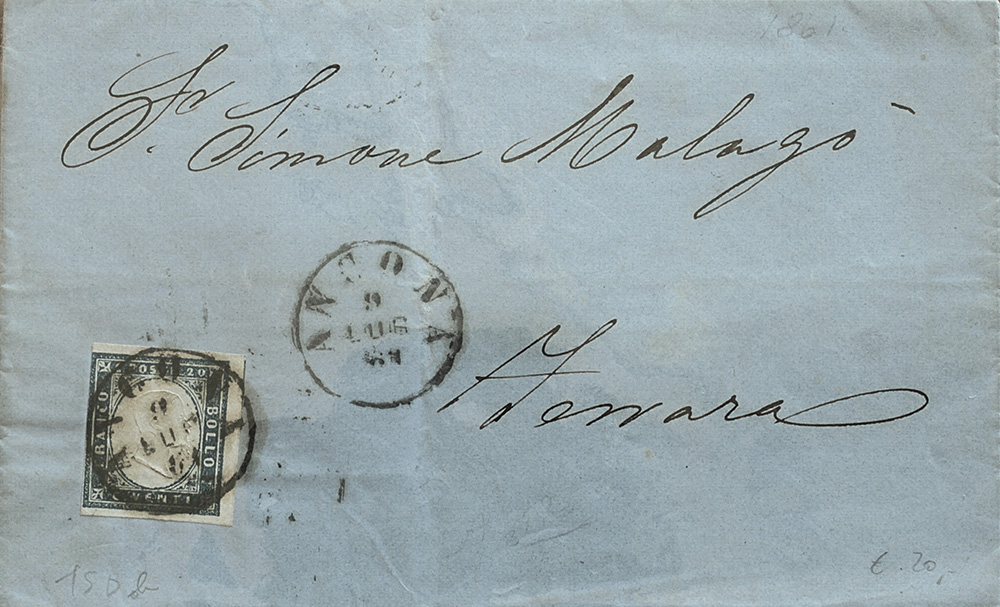 1861
Sr. Simone Malagò
ANCONA
9
LUG
61
Ferrara
POSTE 20
FRANCO
BOLLO
C VENTI
15D
€. 20,-